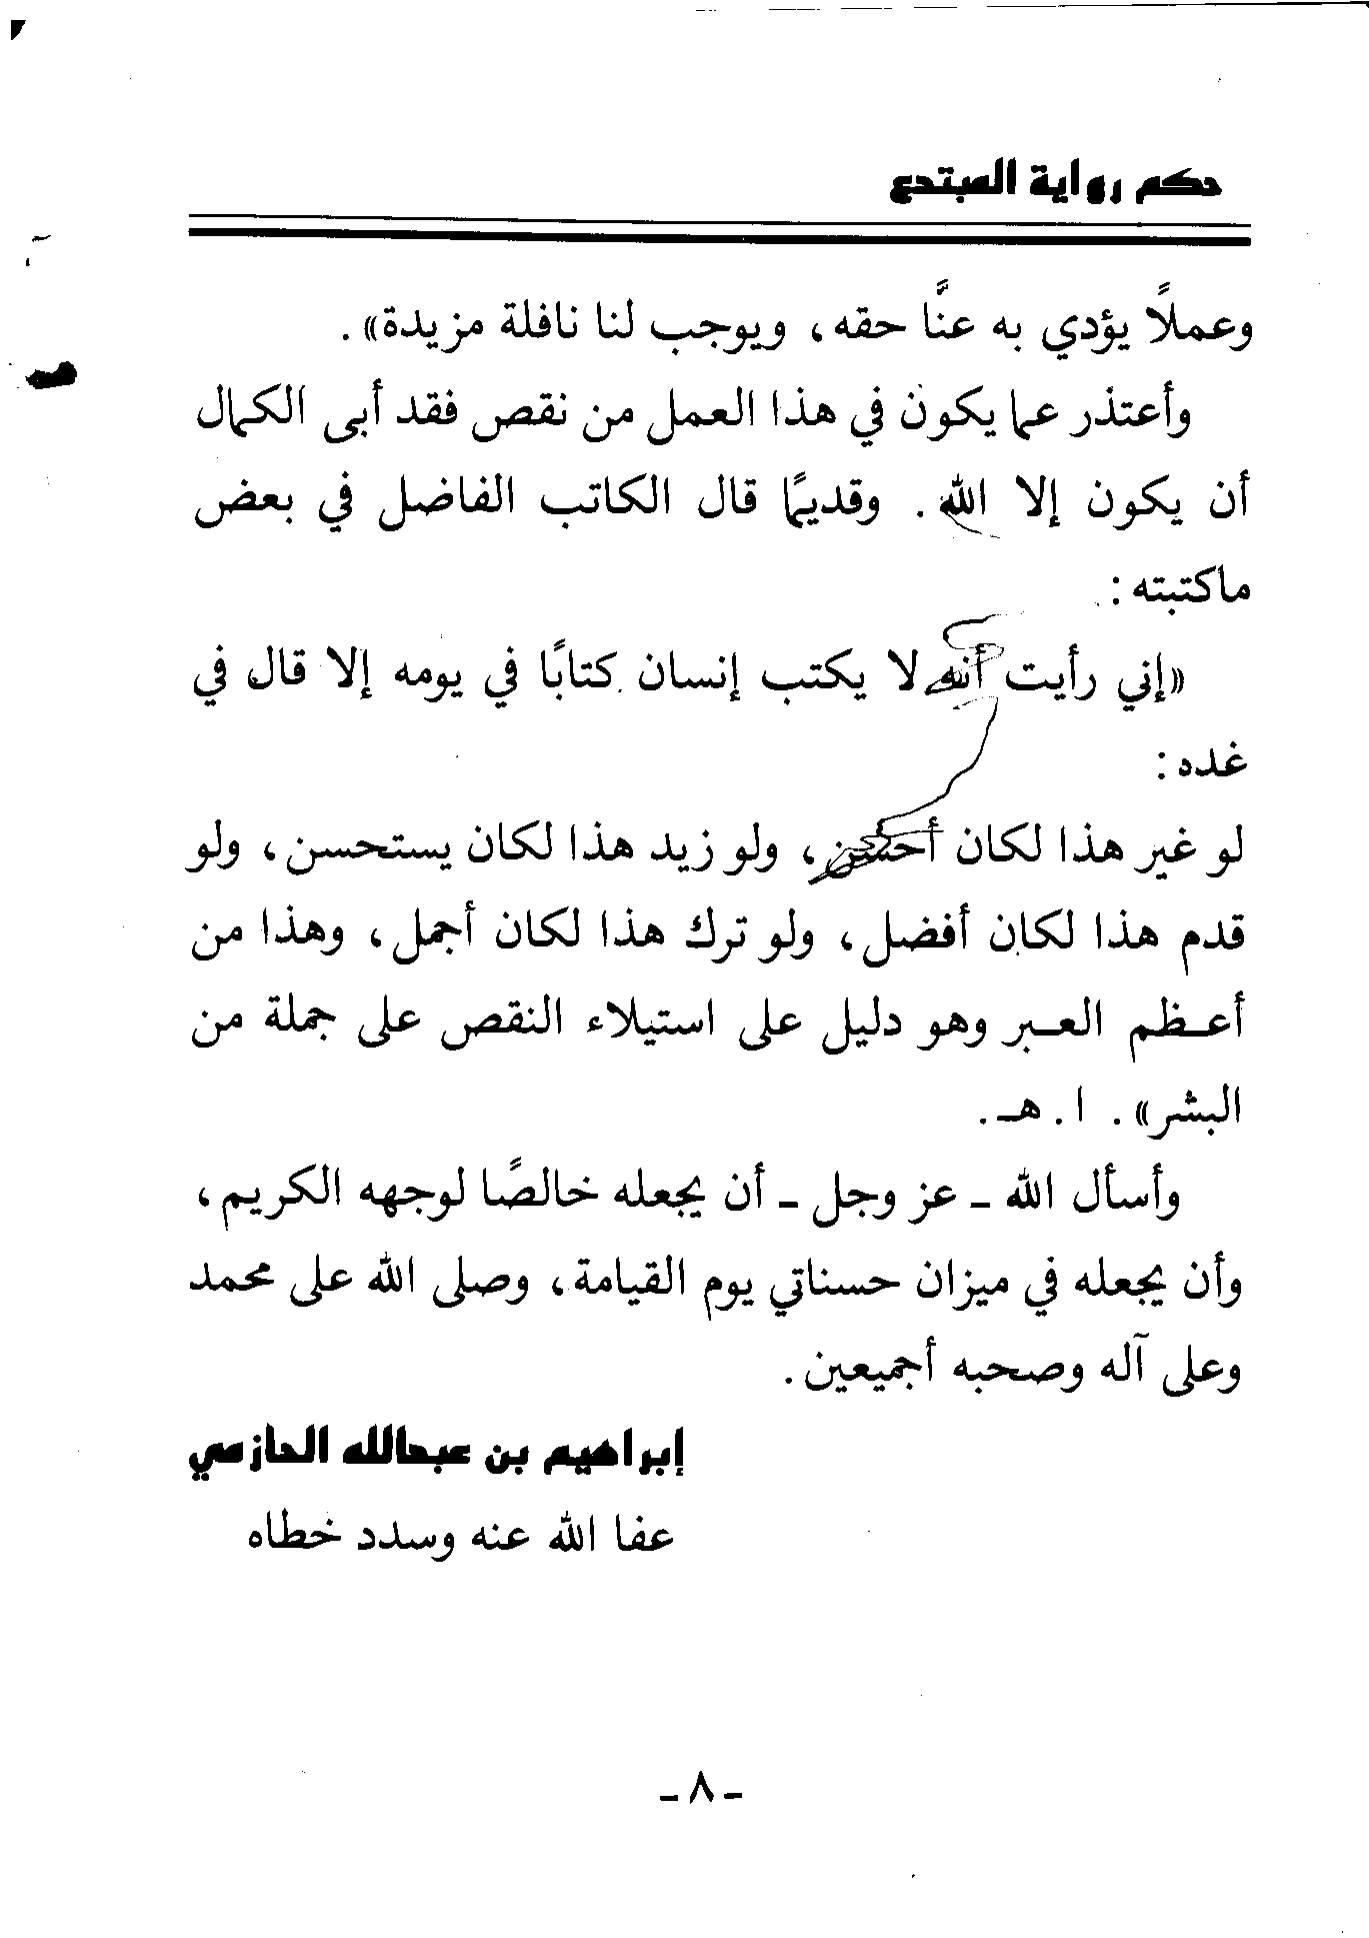 حكم رواية المبتدع
وعملاً يؤدي به عنَّا حقه، ويوجب لنا نافلة مزيدة».
وأعتذر عما يكون في هذا العمل من نقص فقد أبى الكمال
أن يكون إلا الله. وقديمًا قال الكاتب الفاضل في بعض
ماكتبته:
«إني رأيت أنه لا يكتب إنسان كتابًا في يومه إلا قال في
غده:
لو غير هذا لكان أحسن، ولو زيد هذا لكان يستحسن، ولو
قدم هذا لكان أفضل، ولو ترك هذا لكان أجمل، وهذا من
أعـظم العـبر وهو دليل على استيلاء النقص على جملة من
البشر». ا. هـ.
وأسأل الله ـ عز وجل ـ أن يجعله خالصًا لوجهه الكريم،
وأن يجعله في ميزان حسناتي يوم القيامة، وصلى الله على محمد
وعلى آله وصحبه أجميعين.
إبراهيم بن عبدالله الحازمي
عفا الله عنه وسدد خطاه
ـ ٨ ـ